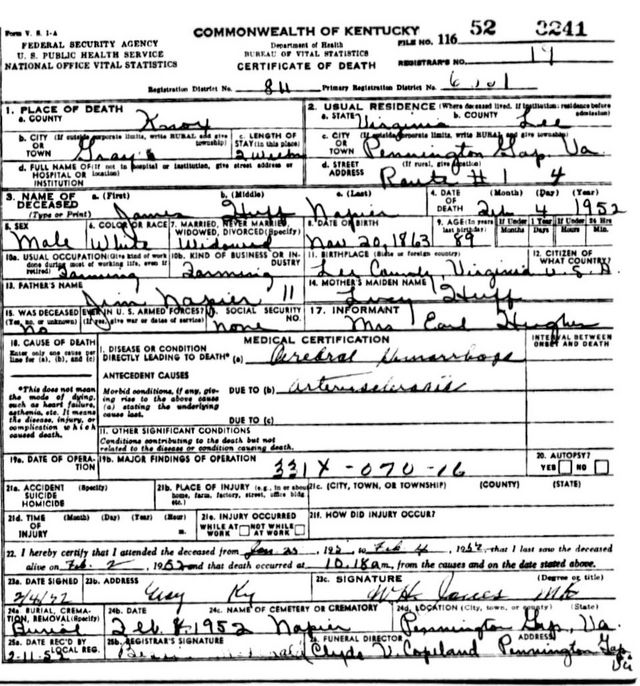 Form V. S. 1-A
COMMONWEALTH OF KENTUCKY
FEDERAL SECURITY AGENCY
U. S. PUBLIC HEALTH SERVICE
NATIONAL OFFICE VITAL STATISTICS
Department of Health
BUREAU OF VITAL STATISTICS
CERTIFICATE OF DEATH
FILE NO. 116 52 3241
REGISTRAR'S NO.
Registration District No. Primary Registration District No.
1. PLACE OF DEATH
a. COUNTY Knox
2. USUAL RESIDENCE (Where deceased lived. If institution: residence before admission)
a. STATE Virginia b. COUNTY Lee
b. CITY (If outside corporate limits, write RURAL and give township) OR TOWN Gray's
c. LENGTH OF STAY (in this place) 2 Weeks
c. CITY (If outside corporate limits, write RURAL and give township) OR TOWN Pennington Gap, Va.
d. FULL NAME OF (If not in hospital or institution, give street address or location) HOSPITAL OR INSTITUTION
d. STREET ADDRESS (If rural, give location) Route # 1 4
3. NAME OF DECEASED (Type or Print)
a. (First) b. (Middle) c. (Last)
James Huff Napier
4. DATE OF DEATH (Month) (Day) (Year)
Feb 4 1952
5. SEX Male
6. COLOR OR RACE White
7. MARRIED, NEVER MARRIED, WIDOWED, DIVORCED (Specify) Widowed
8. DATE OF BIRTH Nov. 20, 1863
9. AGE (In years last birthday) 89
If Under 1 Year Months Days
If Under 24 Hrs Hours Min.
10a. USUAL OCCUPATION (Give kind of work done during most of working life, even if retired) Farmer
10b. KIND OF BUSINESS OR INDUSTRY Farming
11. BIRTHPLACE (State or foreign country) Lee County, Virginia
12. CITIZEN OF WHAT COUNTRY? U.S.A.
13. FATHER'S NAME Jim Napier
14. MOTHER'S MAIDEN NAME Lucy Huff
15. WAS DECEASED EVER IN U. S. ARMED FORCES? (Yes, no, or unknown) (If yes, give war or dates of service) No
16. SOCIAL SECURITY NO. None
17. INFORMANT Mrs Earl Hughes
18. CAUSE OF DEATH
Enter only one cause per line for (a), (b), and (c)
MEDICAL CERTIFICATION
INTERVAL BETWEEN ONSET AND DEATH
I. DISEASE OR CONDITION DIRECTLY LEADING TO DEATH* (a) Cerebral Hemorrhage
*This does not mean the mode of dying, such as heart failure, asthenia, etc. It means the disease, injury, or complication which caused death.
ANTECEDENT CAUSES
Morbid conditions, if any, giving rise to the above cause (a) stating the underlying cause last.
DUE TO (b) Arteriosclerosis
DUE TO (c)
11. OTHER SIGNIFICANT CONDITIONS
Conditions contributing to the death but not related to the disease or condition causing death.
19a. DATE OF OPERATION
19b. MAJOR FINDINGS OF OPERATION
331X-070-16
20. AUTOPSY? YES NO
21a. ACCIDENT SUICIDE HOMICIDE (Specify)
21b. PLACE OF INJURY (e.g., in or about home, farm, factory, street, office bldg. etc.)
21c. (CITY, TOWN, OR TOWNSHIP) (COUNTY) (STATE)
21d. TIME OF INJURY (Month) (Day) (Year) (Hour)
21e. INJURY OCCURRED WHILE AT WORK NOT WHILE AT WORK
21f. HOW DID INJURY OCCUR?
22. I hereby certify that I attended the deceased from Jan 23, 195 to Feb 4, 1952, that I last saw the deceased
alive on Feb. 2, 1952 and that death occurred at 10.18 am, from the causes and on the date stated above.
23a. DATE SIGNED
23b. ADDRESS Gray Ky
23c. SIGNATURE (Degree or title) W.H. Jones MD
24a. BURIAL, CREMATION, REMOVAL (Specify) Burial
24b. DATE 1952
24c. NAME OF CEMETERY OR CREMATORY Napier
24d. LOCATION (City, town, or county) (State) Pennington Gap, Va.
25a. DATE REC'D BY LOCAL REG. 2-11-52
25b. REGISTRAR'S SIGNATURE
FUNERAL DIRECTOR ADDRESS
Clyde V. Copeland Pennington Gap Va